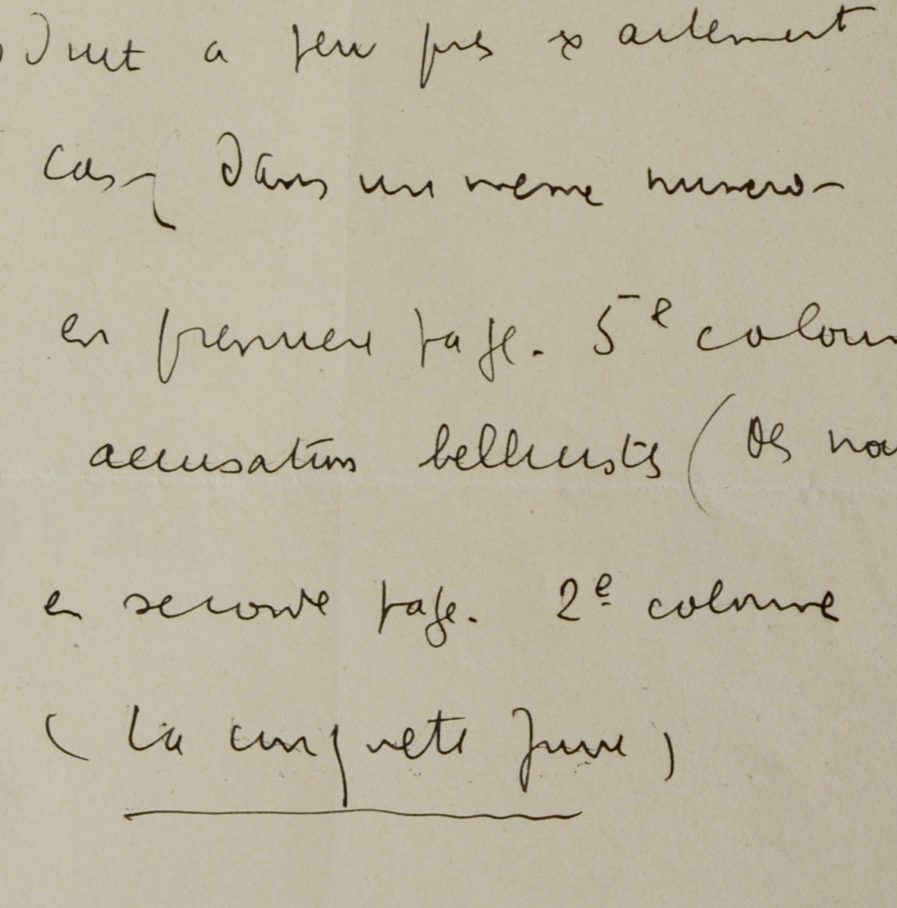 duit à peu près exactement
cas, dans un même numéro -
en première page. 5e colonn
accusations bellicistes (des nou
en seconde page. 2e colonne
( La conquête juive )